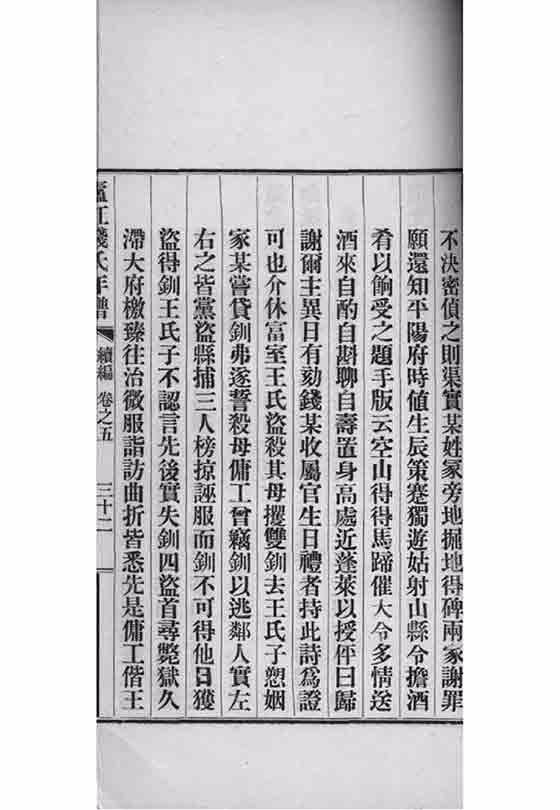 不決密偵之則渠實某姓冢旁地掘地得碑兩家謝罪
願還知平陽府時値生辰策蹇獨遊姑射山縣令擔酒
肴以餉受之題手版云空山得得馬蹄催大令多情送
酒來自酌自斟聊自壽置身高處近蓬萊以授伻曰歸
謝爾主異日有劾錢某收屬官生日禮者持此詩爲證
可也介休富室王氏盜殺其母攫雙釧去王氏子愬姻
家某嘗貸釧弗遂誓殺母傭工曾竊釧以逃鄰人實左
右之皆黨盜縣捕三人榜掠誣服而釧不可得他日獲
盜得釧王氏子不認言先後實失釧四盜首尋斃獄久
滯大府檄臻往治微服詣訪曲折皆悉先是傭工偕王
廬江錢氏年譜
續編
卷之五
三十二